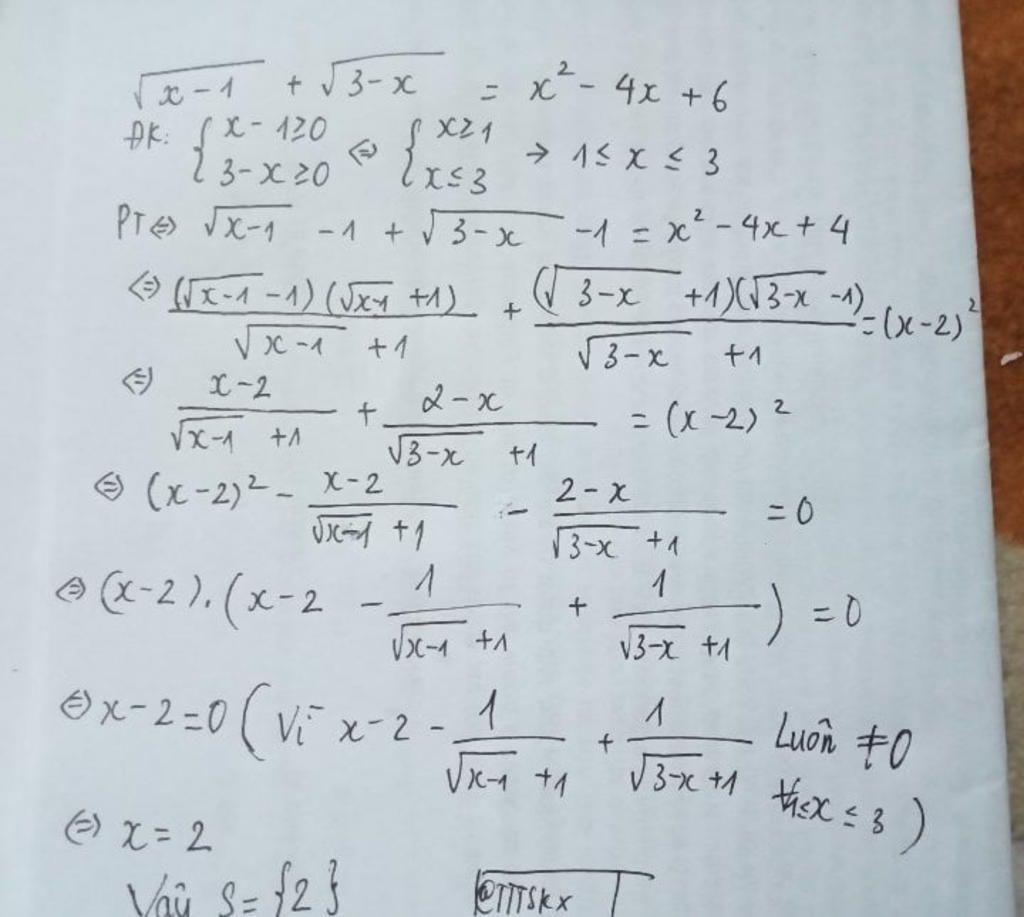 √(x-1) + √(3-x) = x² - 4x + 6
ĐK: { x - 1 ≥ 0 ; 3 - x ≥ 0 ⇔ { x ≥ 1 ; x ≤ 3 → 1 ≤ x ≤ 3
PT ⇔ √(x-1) - 1 + √(3-x) - 1 = x² - 4x + 4
⇔ (√(x-1) - 1)(√(x-1) + 1) / (√(x-1) + 1) + (√(3-x) + 1)(√(3-x) - 1) / (√(3-x) + 1) = (x-2)²
⇔ (x-2) / (√(x-1) + 1) + (2-x) / (√(3-x) + 1) = (x-2)²
⇔ (x-2)² - (x-2) / (√(x-1) + 1) - (2-x) / (√(3-x) + 1) = 0
⇔ (x-2).(x-2 - 1 / (√(x-1) + 1) + 1 / (√(3-x) + 1)) = 0
⇔ x-2=0 (Vì x-2 - 1 / (√(x-1) + 1) + 1 / (√(3-x) + 1) Luôn ≠ 0
∀ 1 ≤ x ≤ 3)
⇔ x = 2
Vậy S = {2}
@TTTSkx